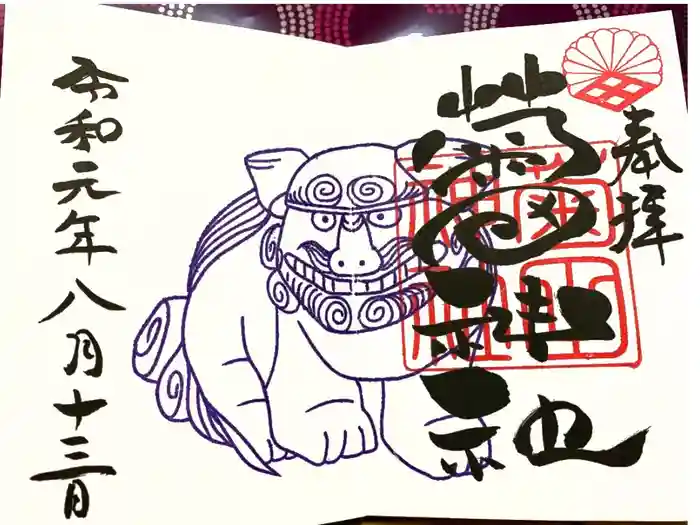 奉拝
菊田神社
令和元年八月十三日